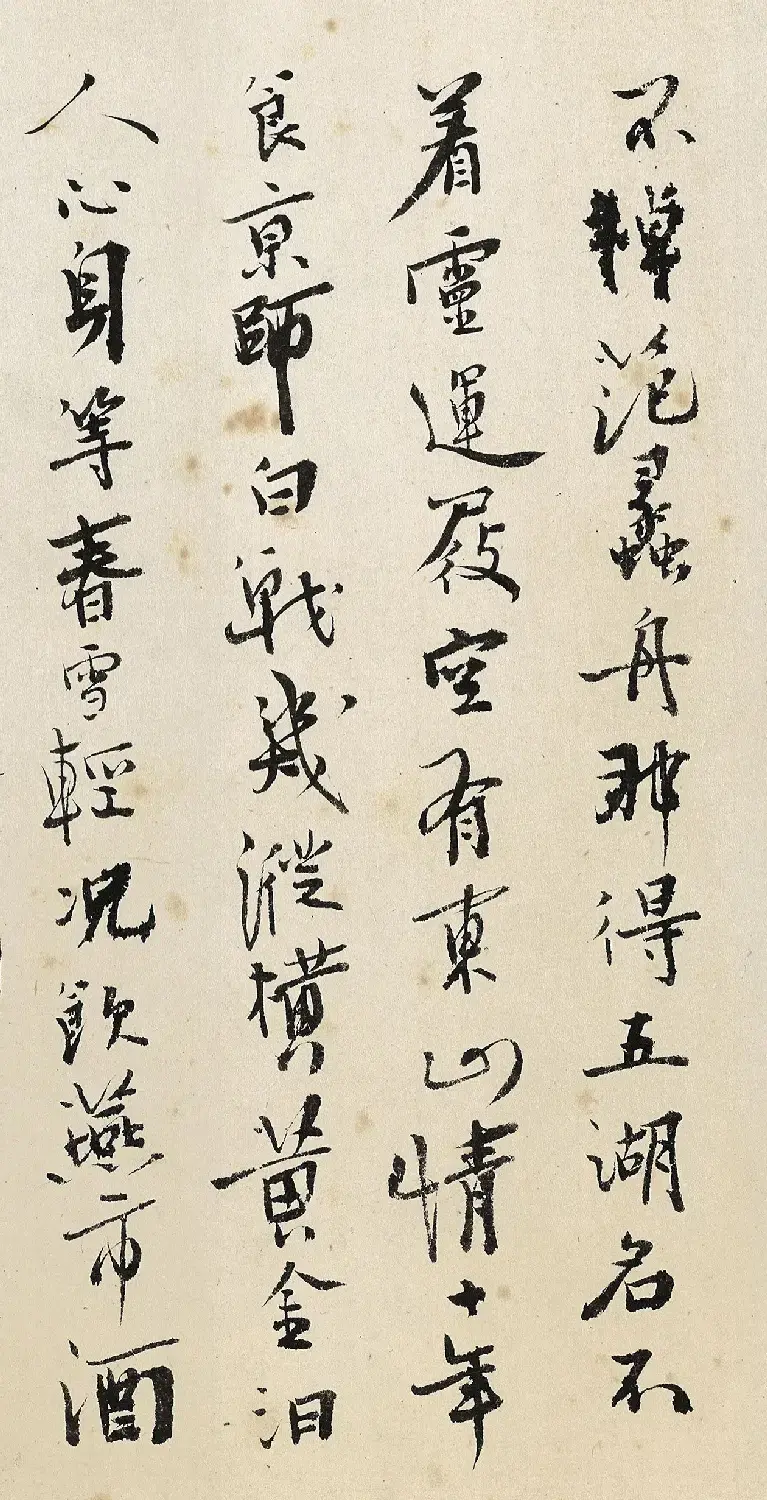 不棹范蠡舟那得五湖名不
着靈運屐空有東山情十年
食京師白戰幾縱橫黃金汩
人心身等春雪輕况飲燕市酒